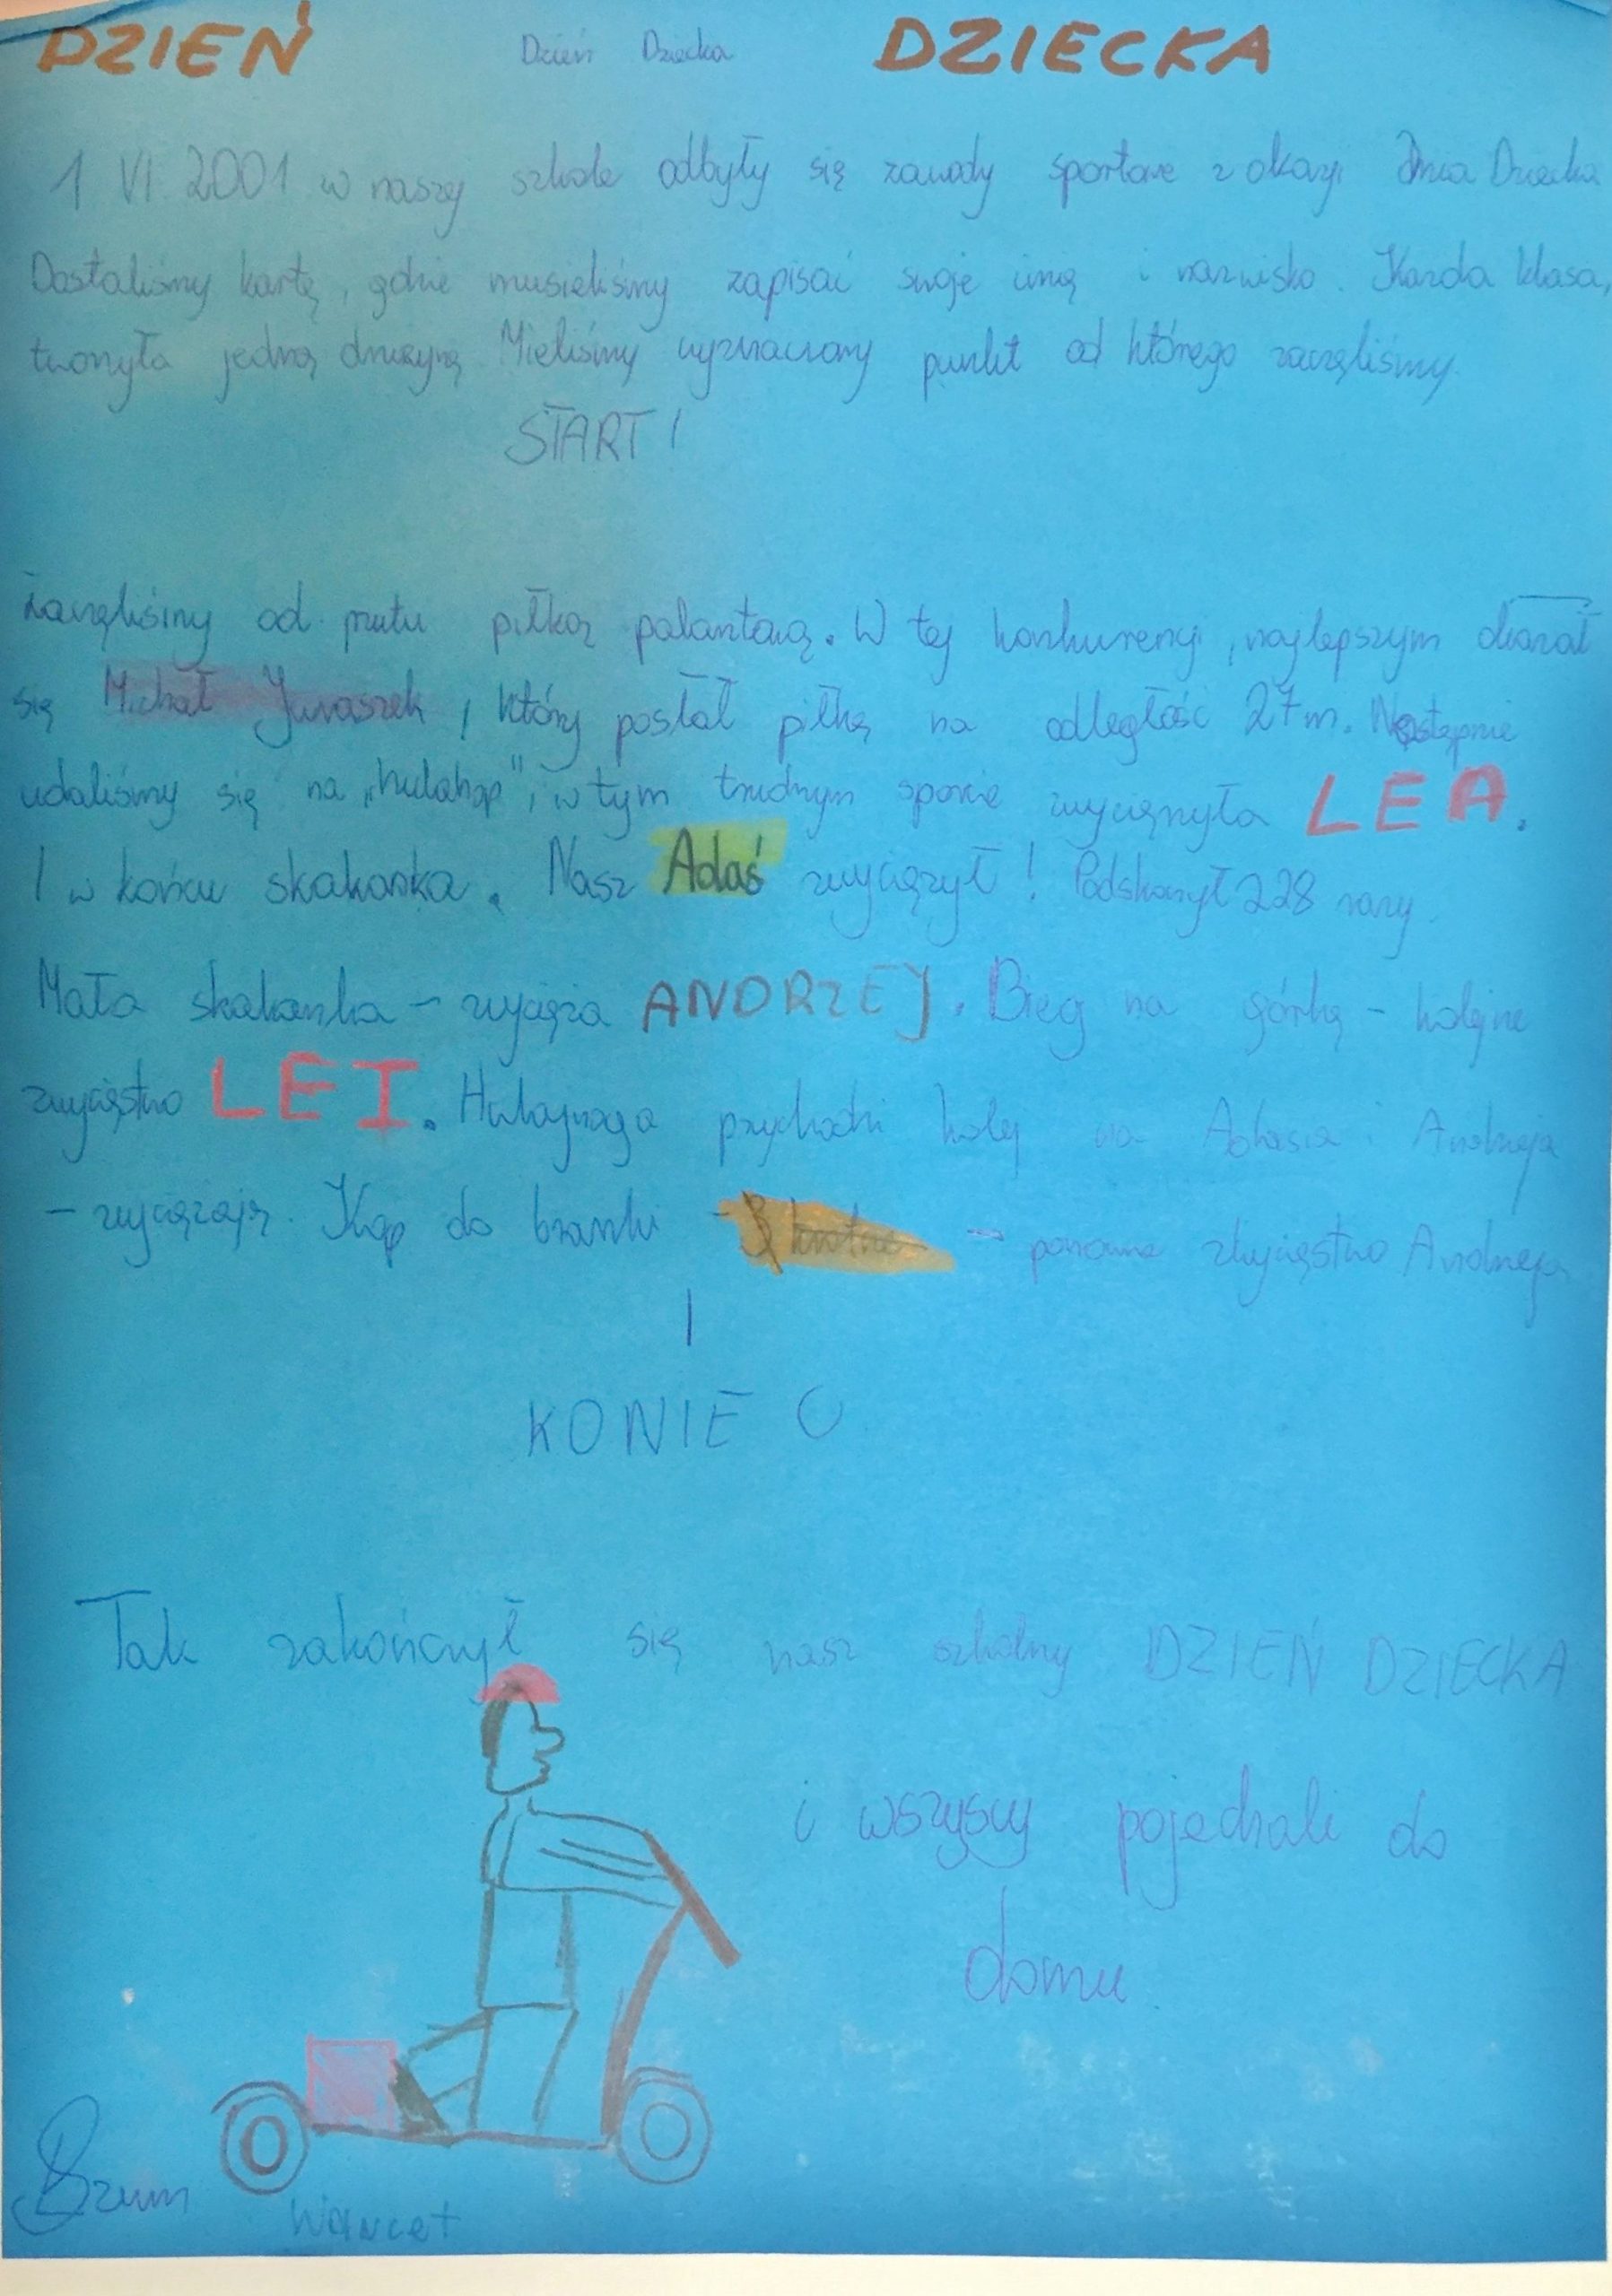 DZIEŃ Dzień Dziecka DZIECKA
1 VI 2001 w naszej szkole odbyły się zawody sportowe z okazji Dnia Dziecka
Dostaliśmy kartę, gdzie musieliśmy zapisać swoje imię i nazwisko. Każda klasa,
tworzyła jedną drużynę. Mieliśmy wyznaczony punkt od którego zaczęliśmy.
START!
Zaczęliśmy od rzutu piłką palantową. W tej konkurencji, najlepszym okazał
się Michał Juraszek, który posłał piłkę na odległość 27m. Następnie
udaliśmy się na „hulahop", w tym trudnym sporcie zwyciężyła LEA.
I w końcu skakanka. Nasz Adaś zwyciężył! Podskoczył 228 razy.
Mała skakanka - zwycięża ANDRZEJ. Bieg na górkę - kolejne
zwycięstwo LEI. Hulajnoga przychodzi kolej na Adasia i Andrzeja
- zwyciężają. Kop do bramki - - ponowne zwycięstwo Andrzeja
I
KONIEC
Tak zakończył się nasz szkolny DZIEŃ DZIECKA
i wszyscy pojechali do
domu.
Bzum